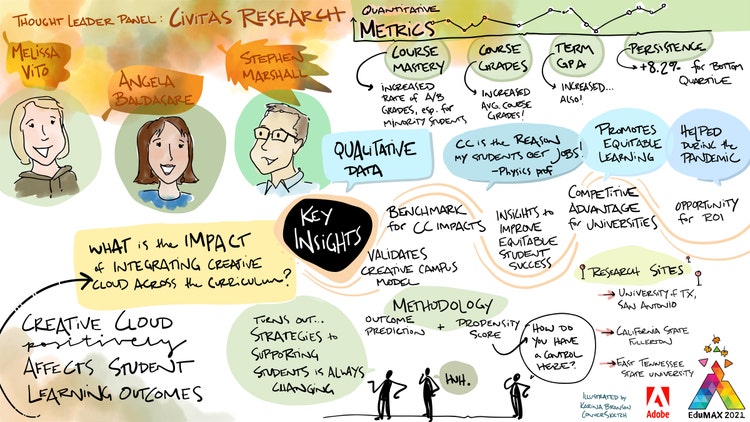 THOUGHT LEADER PANEL: CIVITAS RESEARCH
MELISSA
VITO
ANGELA
BALDASARE
STEPHEN
MARSHALL
QUANTITATIVE
METRICS
COURSE
MASTERY
INCREASED
RATE of A/B
GRADES, esp. for
MINORITY STUDENTS
COURSE
GRADES
INCREASED
AVG. COURSE
GRADES!
TERM
GPA
INCREASED...
ALSO!
PERSISTENCE
+8.2% for BOTTOM
QUARTILE
QUALITATIVE
DATA
CC is the REASON
MY STUDENTS GET JOBS!
-PHYSICS prof
PROMOTES
EQUITABLE
LEARNING
HELPED
DURING the
PANDEMIC
WHAT is the IMPACT
of INTEGRATING CREATIVE
CLOUD ACROSS the CURRICULUM?
KEY
INSIGHTS
BENCHMARK
for CC IMPACTS
VALIDATES
CREATIVE CAMPUS
MODEL
INSIGHTS to
IMPROVE
EQUITABLE
STUDENT
SUCCESS
COMPETITIVE
ADVANTAGE
for UNIVERSITIES
OPPORTUNITY
for ROI
CREATIVE CLOUD
positively
AFFECTS STUDENT
LEARNING OUTCOMES
TURNS OUT...
STRATEGIES to
SUPPORTING
STUDENTS is ALWAYS
CHANGING
METHODOLOGY
OUTCOME
PREDICTION
+
PROPENSITY
SCORE
HUH.
HOW DO
YOU HAVE
a CONTROL
HERE?
RESEARCH SITES
UNIVERSITY of TX,
SAN ANTONIO
CALIFORNIA STATE
FULLERTON
EAST TENNESSEE
STATE UNIVERSITY
ILLUSTRATED by
KARINA BRANSON
CONVERSKETCH
Adobe
EduMAX 2021